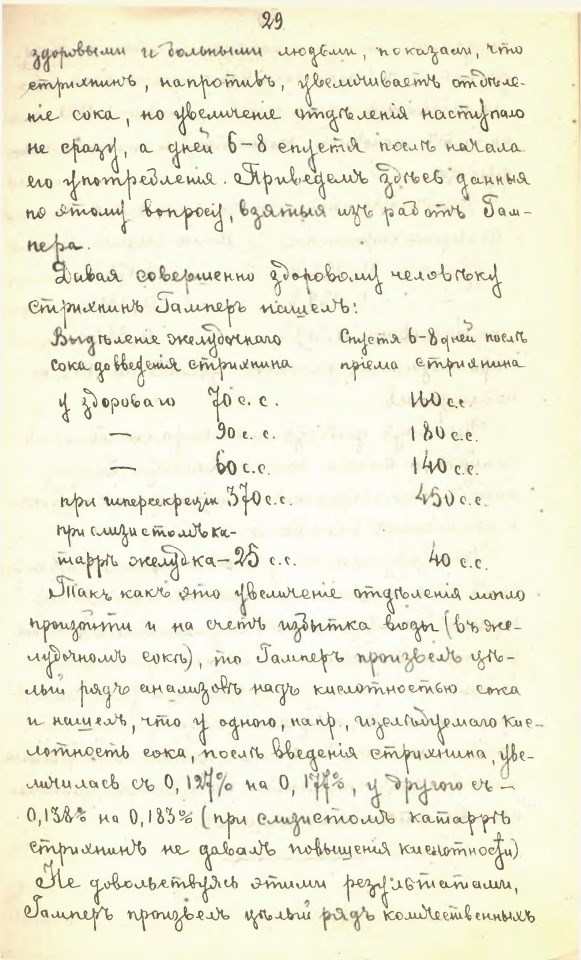 29
здоровыми и больными людьми, показали, что
стрихнинъ, напротивъ, увеличиваетъ отдѣле-
ніе сока, но увеличеніе отдѣленія наступало
не сразу, а дней 6–8 спустя послѣ начала
его употребленія. Приведемъ здѣсь данныя
по этому вопросу, взятыя изъ работъ Гам-
пера.
Давая совершенно здоровому человѣку
стрихнинъ Гамперъ нашелъ:
Выдѣленіе желудочнаго Спустя 6-8 дней послѣ
сока до введенія стрихнина пріема стрихнина
у здороваго 70 с. с. 160 с.с.
— 90 с. с. 180 с.с.
— 60 с.с. 140 с.с.
при гиперсекреціи 370 с.с. 450 с.с.
при слизистомъ ка-
таррѣ желудка – 25 с.с. 40 с.с.
Такъ какъ это увеличеніе отдѣленія могло
произойти и на счетъ избытка воды (въ же-
лудочномъ сокѣ), то Гамперъ произвелъ цѣ-
лый рядъ анализовъ надъ кислотностью сока
и нашелъ, что у одного, напр., изслѣдуемаго кис-
лотность сока, послѣ введенія стрихнина, уве-
личилась съ 0,127% на 0,177%, у другого съ –
0,138% на 0,183% (при слизистомъ катаррѣ
стрихнинъ не давалъ повышенія кислотности)
Не довольствуясь этими результатами,
Гамперъ произвелъ цѣлый рядъ количественныхъ